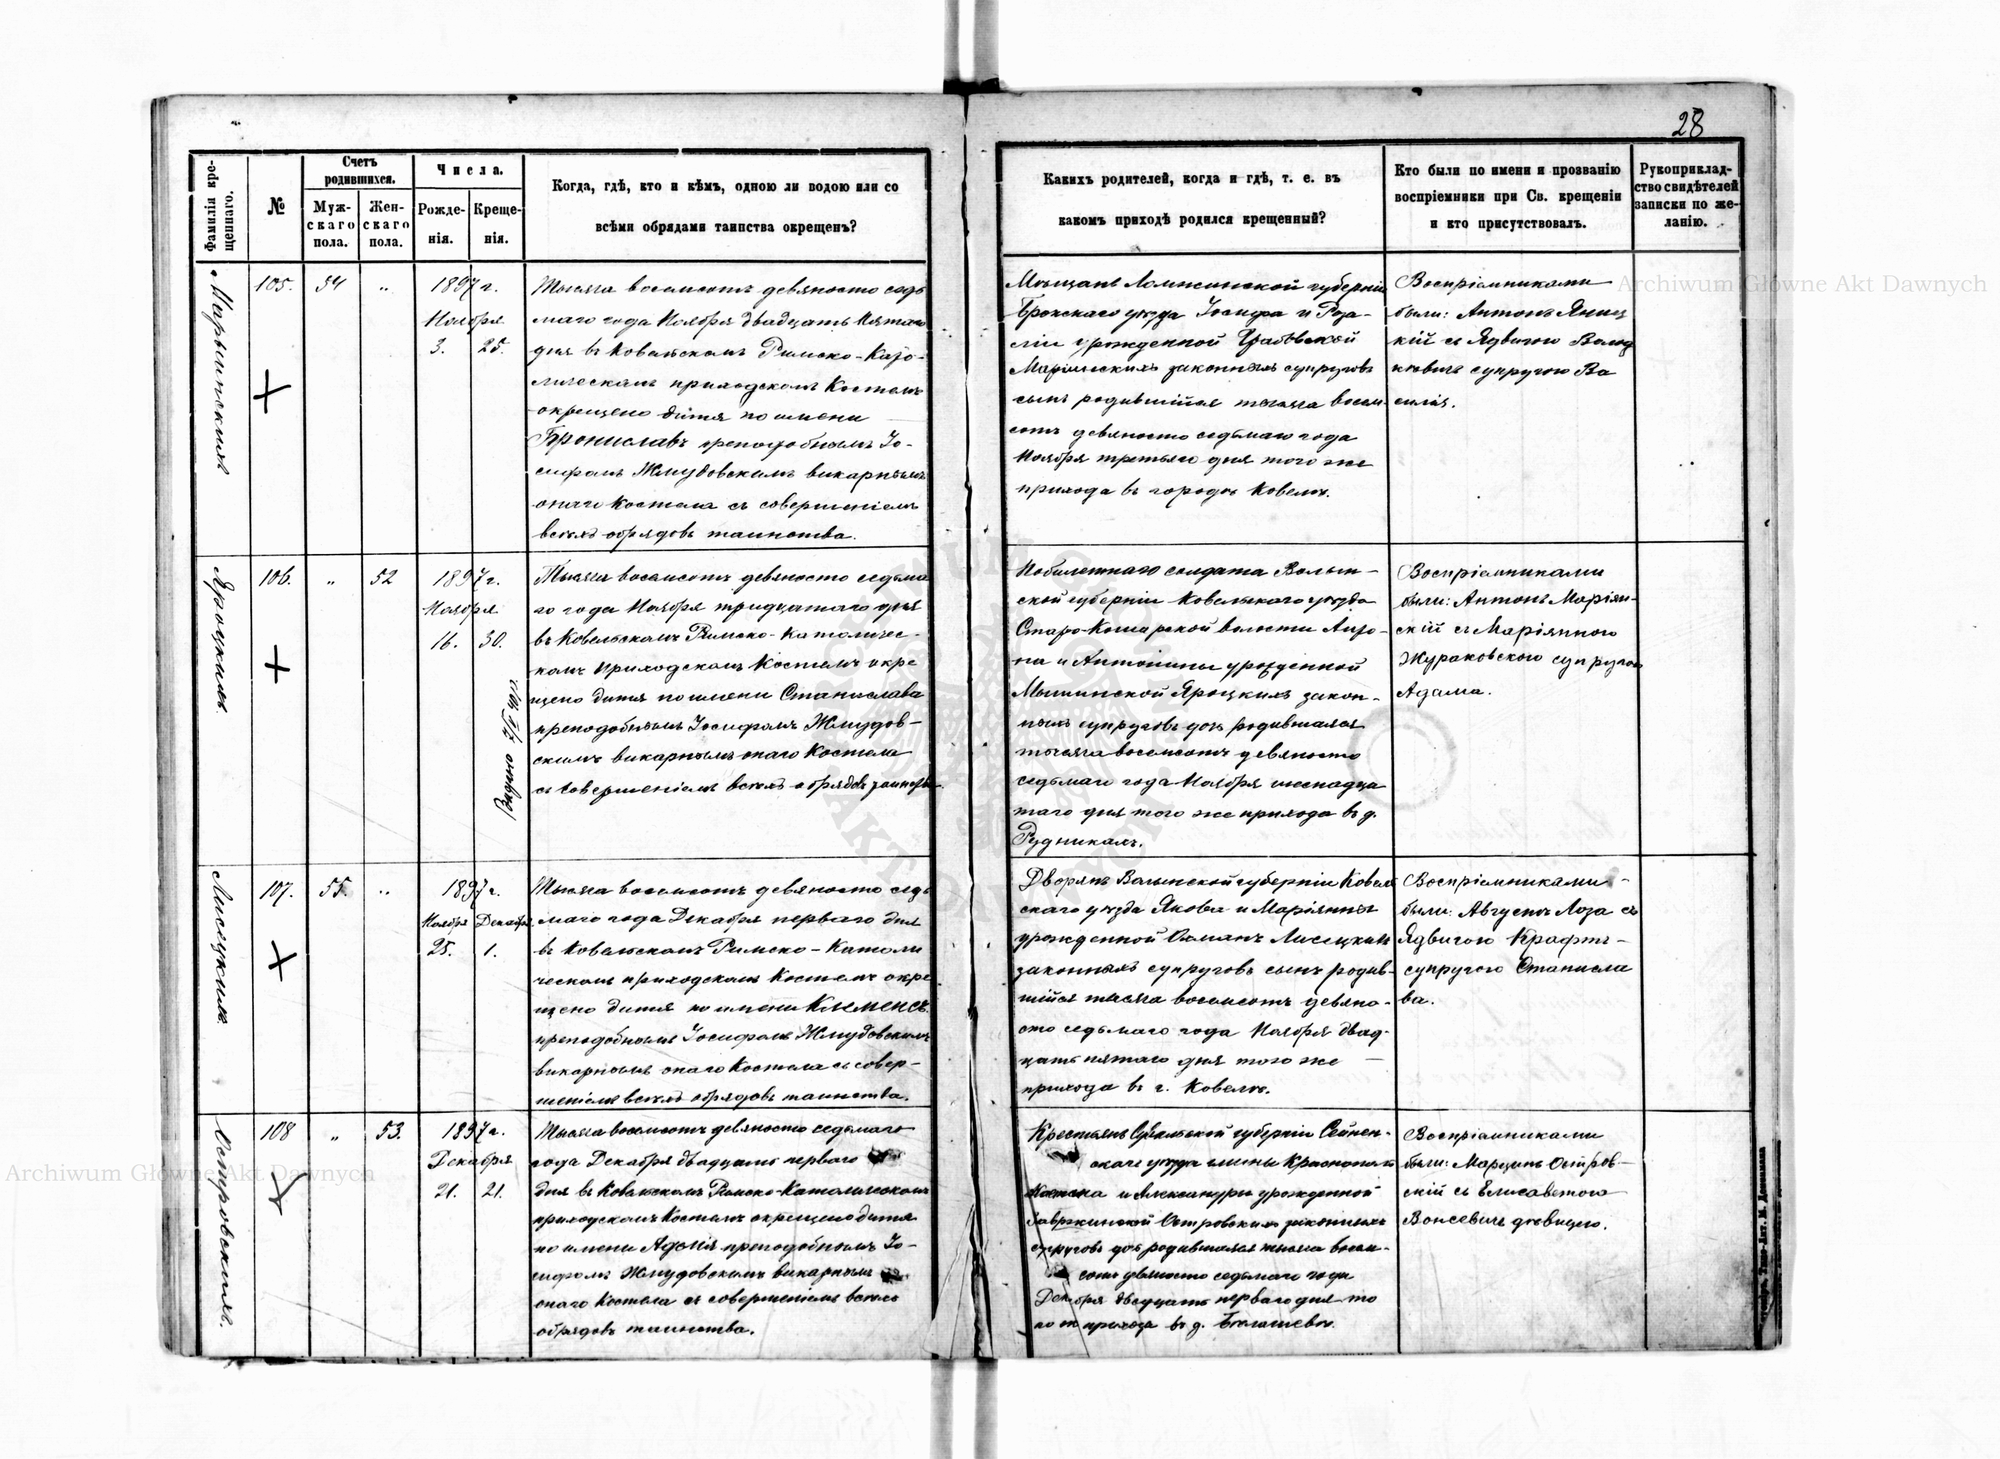 28
Фамилія кре-
щеннаго.
№
Счетъ
родившихся.
Муж-
скаго
пола.
Жен-
скаго
пола.
Числа.
Рожде-
нія.
Креще-
нія.
Когда, гдѣ, кто и кѣмъ, одною ли водою или со
всѣми обрядами таинства окрещенъ?
Какихъ родителей, когда и гдѣ, т. е. въ
какомъ приходѣ родился крещенный?
Кто были по имени и прозванію
воспріемники при Св. крещеніи
и кто присутствовалъ.
Рукоприклад-
ство свидѣтелей
записки по же-
ланію.
105.
54
"
1897 г.
Ноября
3. 25.
Тысяча восемсотъ девяносто седь
маго года Ноября двадцать пятаго
дня въ Ковельскомъ Римско-Като-
лическомъ приходскомъ Костелѣ
окрещено дитя по имени
Брониславъ преподобнымъ Іо-
сифомъ Жмудовскимъ викарнымъ
онаго Костела съ совершеніемъ
всѣхъ обрядовъ таинства.
Мѣщанъ Ломжинской губерніи
уѣзда Іосифа и Роза-
ліи урожденной
законныхъ супруговъ
сынъ родившійся тысяча восем-
сотъ девяносто седьмаго года
Ноября третьяго дня того же
прихода въ городѣ Ковелѣ.
Воспріемниками
были: Антонъ Яниц
кій съ Ядвигою
супругою Ва
силія.
Яроцкихъ.
106.
"
52
1897 г.
Ноября
16. 30.
Тысяча восемсотъ девяносто седьма
го года Ноября тридцатаго дня
въ Ковельскомъ Римско-Католичес-
комъ приходскомъ Костелѣ окре
щено дитя по имени Станислава
преподобнымъ Іосифомъ Жмудов-
скимъ викарнымъ онаго Костела
съ совершеніемъ всѣхъ обрядовъ таинства
солдата Волын-
ской губерніи Ковельскаго уѣзда
Старо-Кошарской волости Анто-
на и Антонины урожденной
Мышинской Яроцкихъ закон-
ныхъ супруговъ дочь родившаяся
тысяча восемсотъ девяносто
седьмаго года Ноября шеснадца
таго дня того же прихода въ д.
Рудникахъ.
Воспріемниками
были: Антонъ Маріян-
скій съ Маріянною
Жураковскою супругою
Адама.
Лисецкихъ.
107.
55.
"
1897 г.
Ноября Декабря
25. 1.
Тысяча восемсотъ девяносто седь
маго года Декабря перваго дня
въ Ковельскомъ Римско-Католи
ческомъ приходскомъ Костелѣ окре
щено дитя по имени Клеменсъ
преподобнымъ Іосифомъ Жмудовскимъ
викарнымъ онаго Костела съ совер-
шеніемъ всѣхъ обрядовъ таинства.
Дворянъ Волынской губерніи Ковель
скаго уѣзда Якова и Маріянны
урожденной Лисецкихъ
законныхъ супруговъ сынъ родив-
шійся тысяча восемсотъ девяно-
сто седьмаго года Ноября двад-
цать пятаго дня того же
прихода въ г. Ковелѣ.
Воспріемниками
были: Августъ Лоза съ
Ядвигою Крафтъ
супругою Станисла
ва.
Островскихъ.
108
"
53.
1897 г.
Декабря
21. 21.
Тысяча восемсотъ девяносто седьмаго
года Декабря двадцать перваго
дня въ Ковельскомъ Римско-Католическомъ
приходскомъ Костелѣ окрещено дитя
по имени преподобнымъ Іо-
сифомъ Жмудовскимъ викарнымъ
онаго Костела съ совершеніемъ всѣхъ
обрядовъ таинства.
Крестьянъ Сувалкской губерніи Сейнен-
скаго уѣзда гмины
и Александры урожденной
Островскихъ законныхъ
супруговъ дочь родившаяся тысяча восем-
сотъ девяносто седьмаго года
Декабря двадцать перваго дня то
го же прихода въ д.
Воспріемниками
были: Марцинъ Остров-
скій съ Елисаветою
Вонсевичъ дѣвицею.
Archiwum Główne Akt Dawnych
Archiwum Główne Akt Dawnych